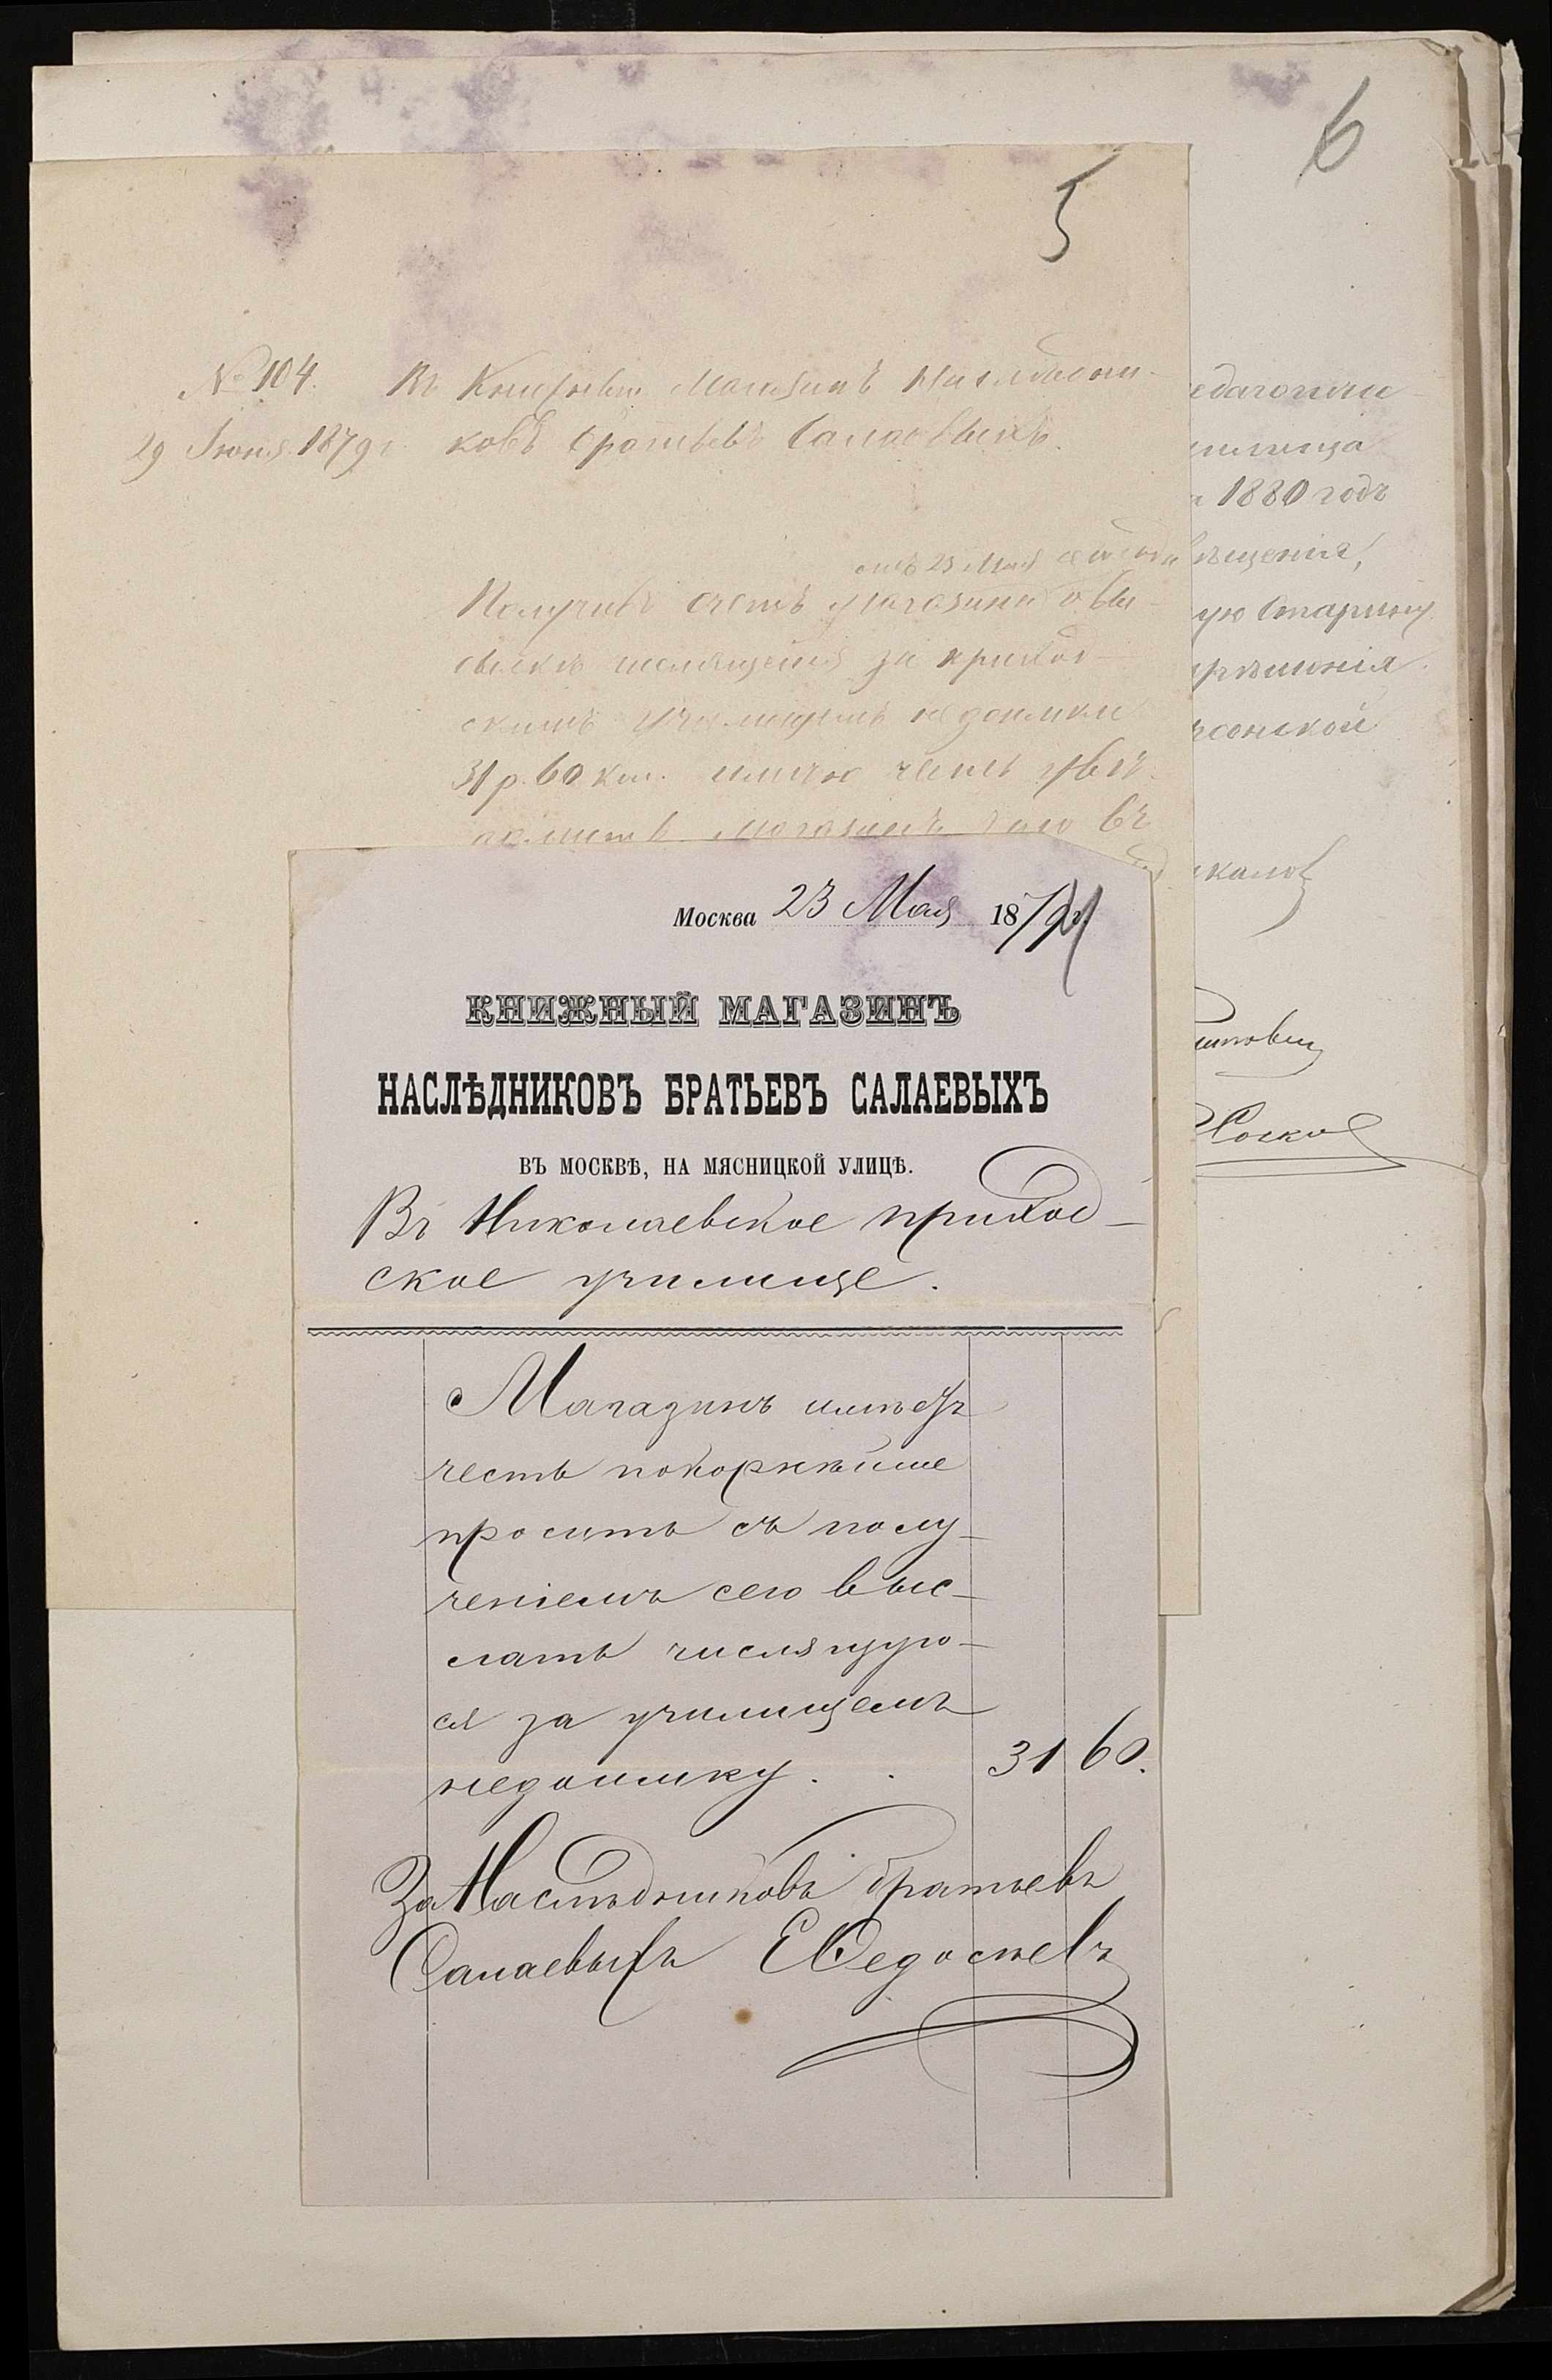 6
5
№ 104. Въ Книжный Магазинъ Наслѣдни-
29 Іюня 1879 г. ковъ братьевъ Салаевыхъ.
отъ 23 Мая сего года
Получивъ счетъ Магазина о вы-
сылкѣ числящейся за приход-
скимъ училищемъ недоимки
31 р. 60 коп. имѣю честь увѣ-
магазинъ въ
едагогиче
илища
1880 годъ
ѣщенія,
ую Старину
рсонской
Москва 23 Мая 1879
КНИЖНЫЙ МАГАЗИНЪ
НАСЛѢДНИКОВЪ БРАТЬЕВЪ САЛАЕВЫХЪ
ВЪ МОСКВѢ, НА МЯСНИЦКОЙ УЛИЦѢ.
Въ Николаевское приход-
ское училище.
Магазинъ имѣетъ
честь покорнѣйше
просить съ полу-
ченіемъ сего выс-
лать числящую-
ся за училищемъ
недоимку . . 31 60.
За Наслѣдниковъ братьевъ
Салаевыхъ Е Ѳедосѣевъ